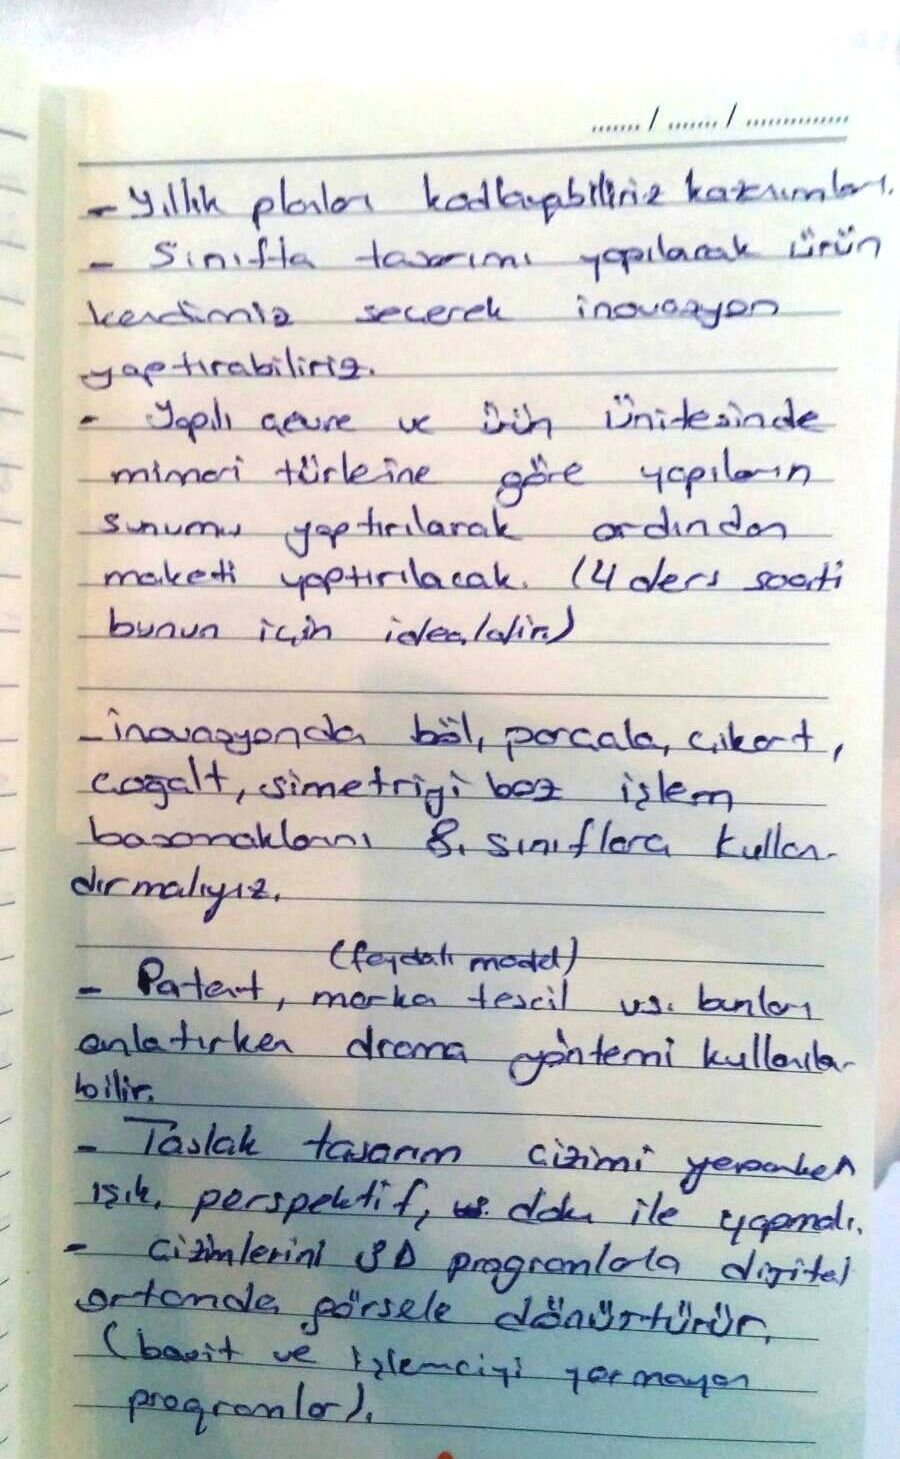 ....... / ....... / ..............
- Yıllık planları kodlayabiliriz kazanımları.
- Sınıfta tasarımı yapılacak ürün
kendimiz seçerek inovasyon
yaptırabiliriz.
- Yapılı çevre ve ürün ünitesinde
mimari türleine göre yapıların
sunumu yaptırılarak ardından
maketi yaptırılacak. (4 ders saati
bunun için idealdir.)
- İnovasyonda böl, parçala, çıkart,
çoğalt, simetriyi boz işlem
basamaklarını 8. sınıflara kullan-
dırmalıyız.
(faydalı model)
- Patent, marka tescil vs. bunları
anlatırken drama yöntemi kullanıla-
bilir.
- Taslak tasarım çizimi yaparken
ışık, perspektif, doku ile yapmalı.
- Çizimlerini 3D programlala dijital
ortamda görsele dönüştürür.
(basit ve işlemciyi yormayan
programlar).